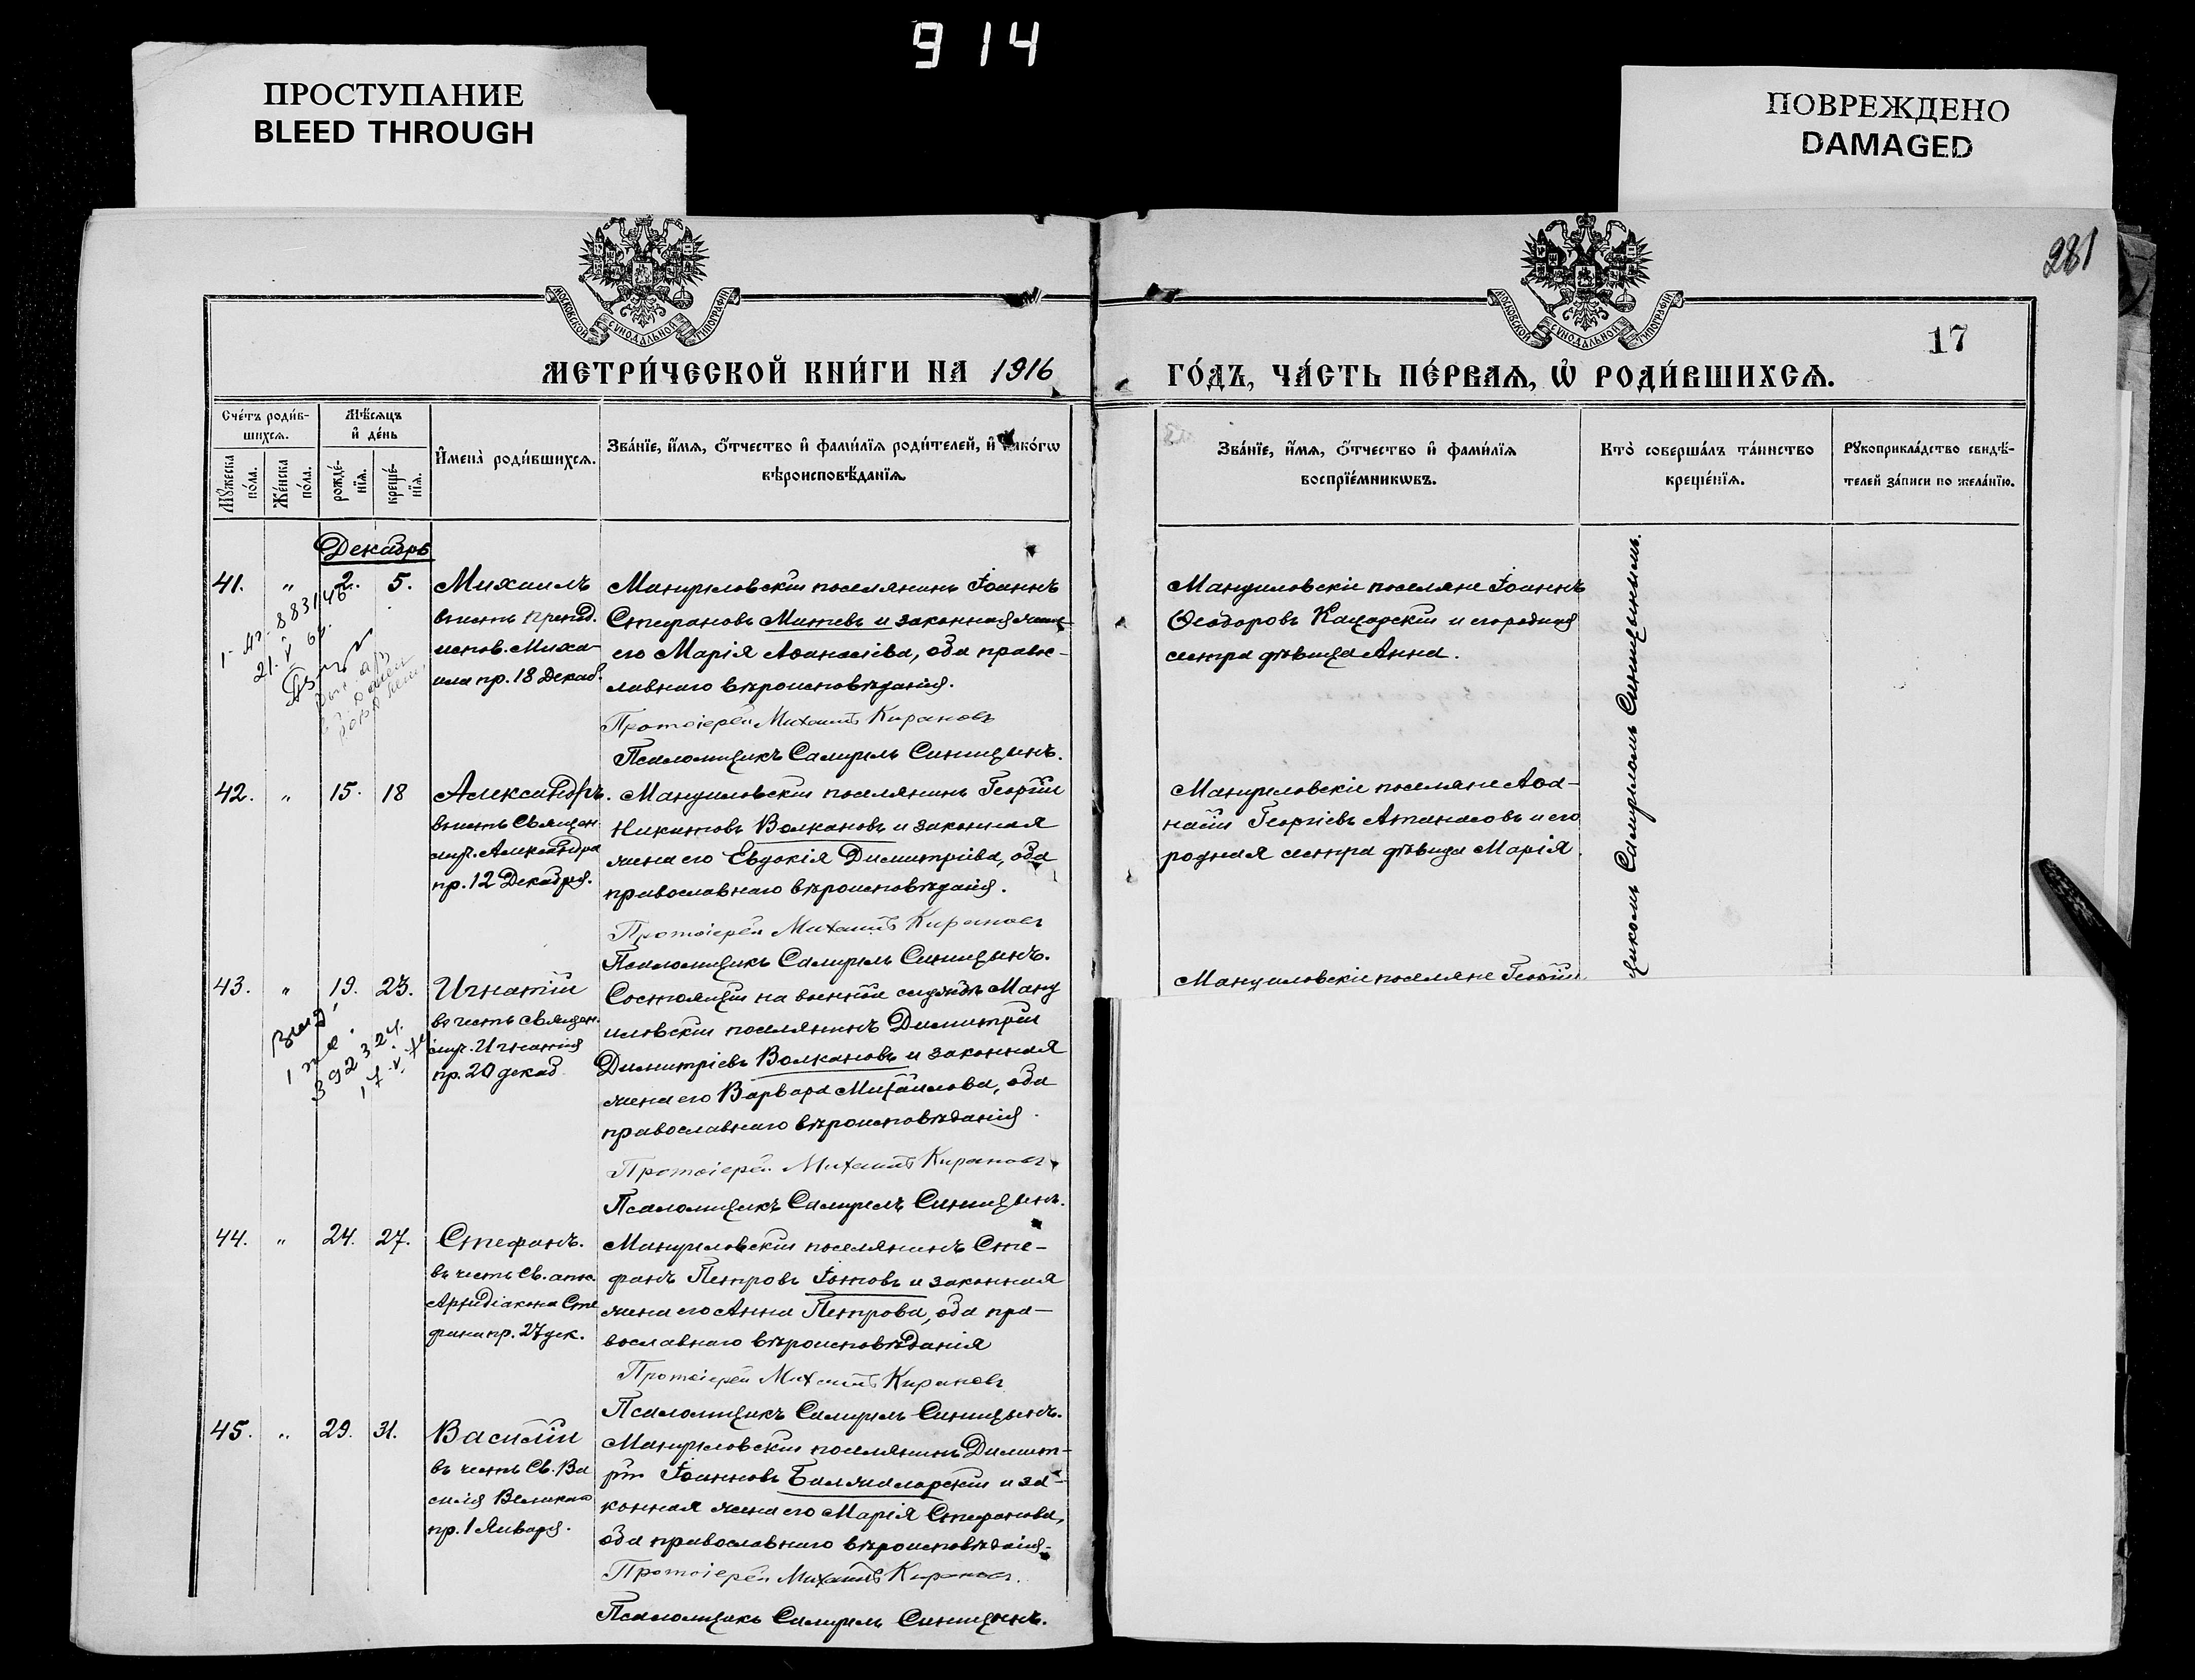 914
ПРОСТУПАНИЕ
BLEED THROUGH
ПОВРЕЖДЕНО
DAMAGED
281
МОСКОВСКОЙ СѴНОДАЛЬНОЙ ТИПОГРАФІИ
МОСКОВСКОЙ СѴНОДАЛЬНОЙ ТИПОГРАФІИ
17
МЕТРИ́ЧЕСКОЙ КНИ́ГИ НА 1916
ГО́ДЪ, ЧА́СТЬ ПЕ́РВАѦ, Ѽ РОДИ́ВШИХСѦ.
Сче́тъ роди́в-
шихсѧ.
Мꙋжеска по́ла.
Же́нска по́ла.
Мѣ́сѧцъ
и҆ де́нь
рожде́-
нїѧ.
креще́-
нїѧ.
И҆мена̀ роди́вшихсѧ.
Зва́нїе, и҆́мѧ, ѻ҆́тчество и҆ фами́лїѧ роди́телей, и҆ како́гѡ
вѣроисповѣ́данїѧ.
Зва́нїе, и҆́мѧ, ѻ҆́тчество и҆ фами́лїѧ
воспрїе́мникѡвъ.
Кто̀ соверша́лъ та́инство
креще́нїѧ.
Рꙋкоприкла́дство свидѣ́-
телей за́писи по жела́нїю.
Декабрь
41. " 2. 5. Михаилъ
въ честь препод.
испов. Миха-
ила пр. 18 Декаб.
Мануиловскій поселянинъ Іоаннъ
Стефановъ Митевъ и законная жена
его Марія Аѳанасіева, оба правос-
лавнаго вѣроисповѣданія.
Протоіерей Михаилъ Кирановъ
Псаломщикъ Самуилъ Синицынъ.
Мануиловскіе поселяне Іоаннъ
Ѳеодоровъ Кацарскій и его родная
сестра дѣвица Анна.
42. " 15. 18 Александръ.
въ честь Священ
муч. Александра
пр. 12 Декабря.
Мануиловскій поселянинъ Георгій
Никитовъ Волкановъ и законная
жена его Евдокія Димитріева, оба
православнаго вѣроисповѣданія.
Протоіерей Михаилъ Кирановъ
Псаломщикъ Самуилъ Синицынъ.
Мануиловскіе поселяне Аѳа-
насій Георгіевъ Атанасовъ и его
родная сестра дѣвица Марія.
щикомъ Самуиломъ Синицынымъ.
43. " 19. 23. Игнатій
въ честь священ.
муч. Игнатія
пр. 20 декаб
Состоящій на военной службѣ Ману
иловскій поселянинъ Димитрій
Димитріевъ Волкановъ и законная
жена его Варвара Михаилова, оба
православнаго вѣроисповѣданія.
Протоіерей Михаилъ Кирановъ
Псаломщикъ Самуилъ Синицынъ.
Мануиловскіе поселяне Георгій
44. " 24. 27. Стефанъ.
въ честь Св. апос.
Архидіакона Сте
фана пр. 27 дек.
Мануиловскій поселянинъ Сте-
фанъ Петровъ Іотовъ и законная
жена его Анна Петрова, оба пра-
вославнаго вѣроисповѣданія
Протоіерей Михаилъ Кирановъ
Псаломщикъ Самуилъ Синицынъ.
45. " 29. 31. Василій
въ честь Св. Ва
силія Великаго
пр. 1 Января.
Мануиловскій поселянинъ Димит-
рій Іоанновъ Балжаларскій и за-
конная жена его Марія Стефанова,
оба православнаго вѣроисповѣданія.
Протоіерей Михаилъ Кирановъ.
Псаломщикъ Самуилъ Синицынъ.